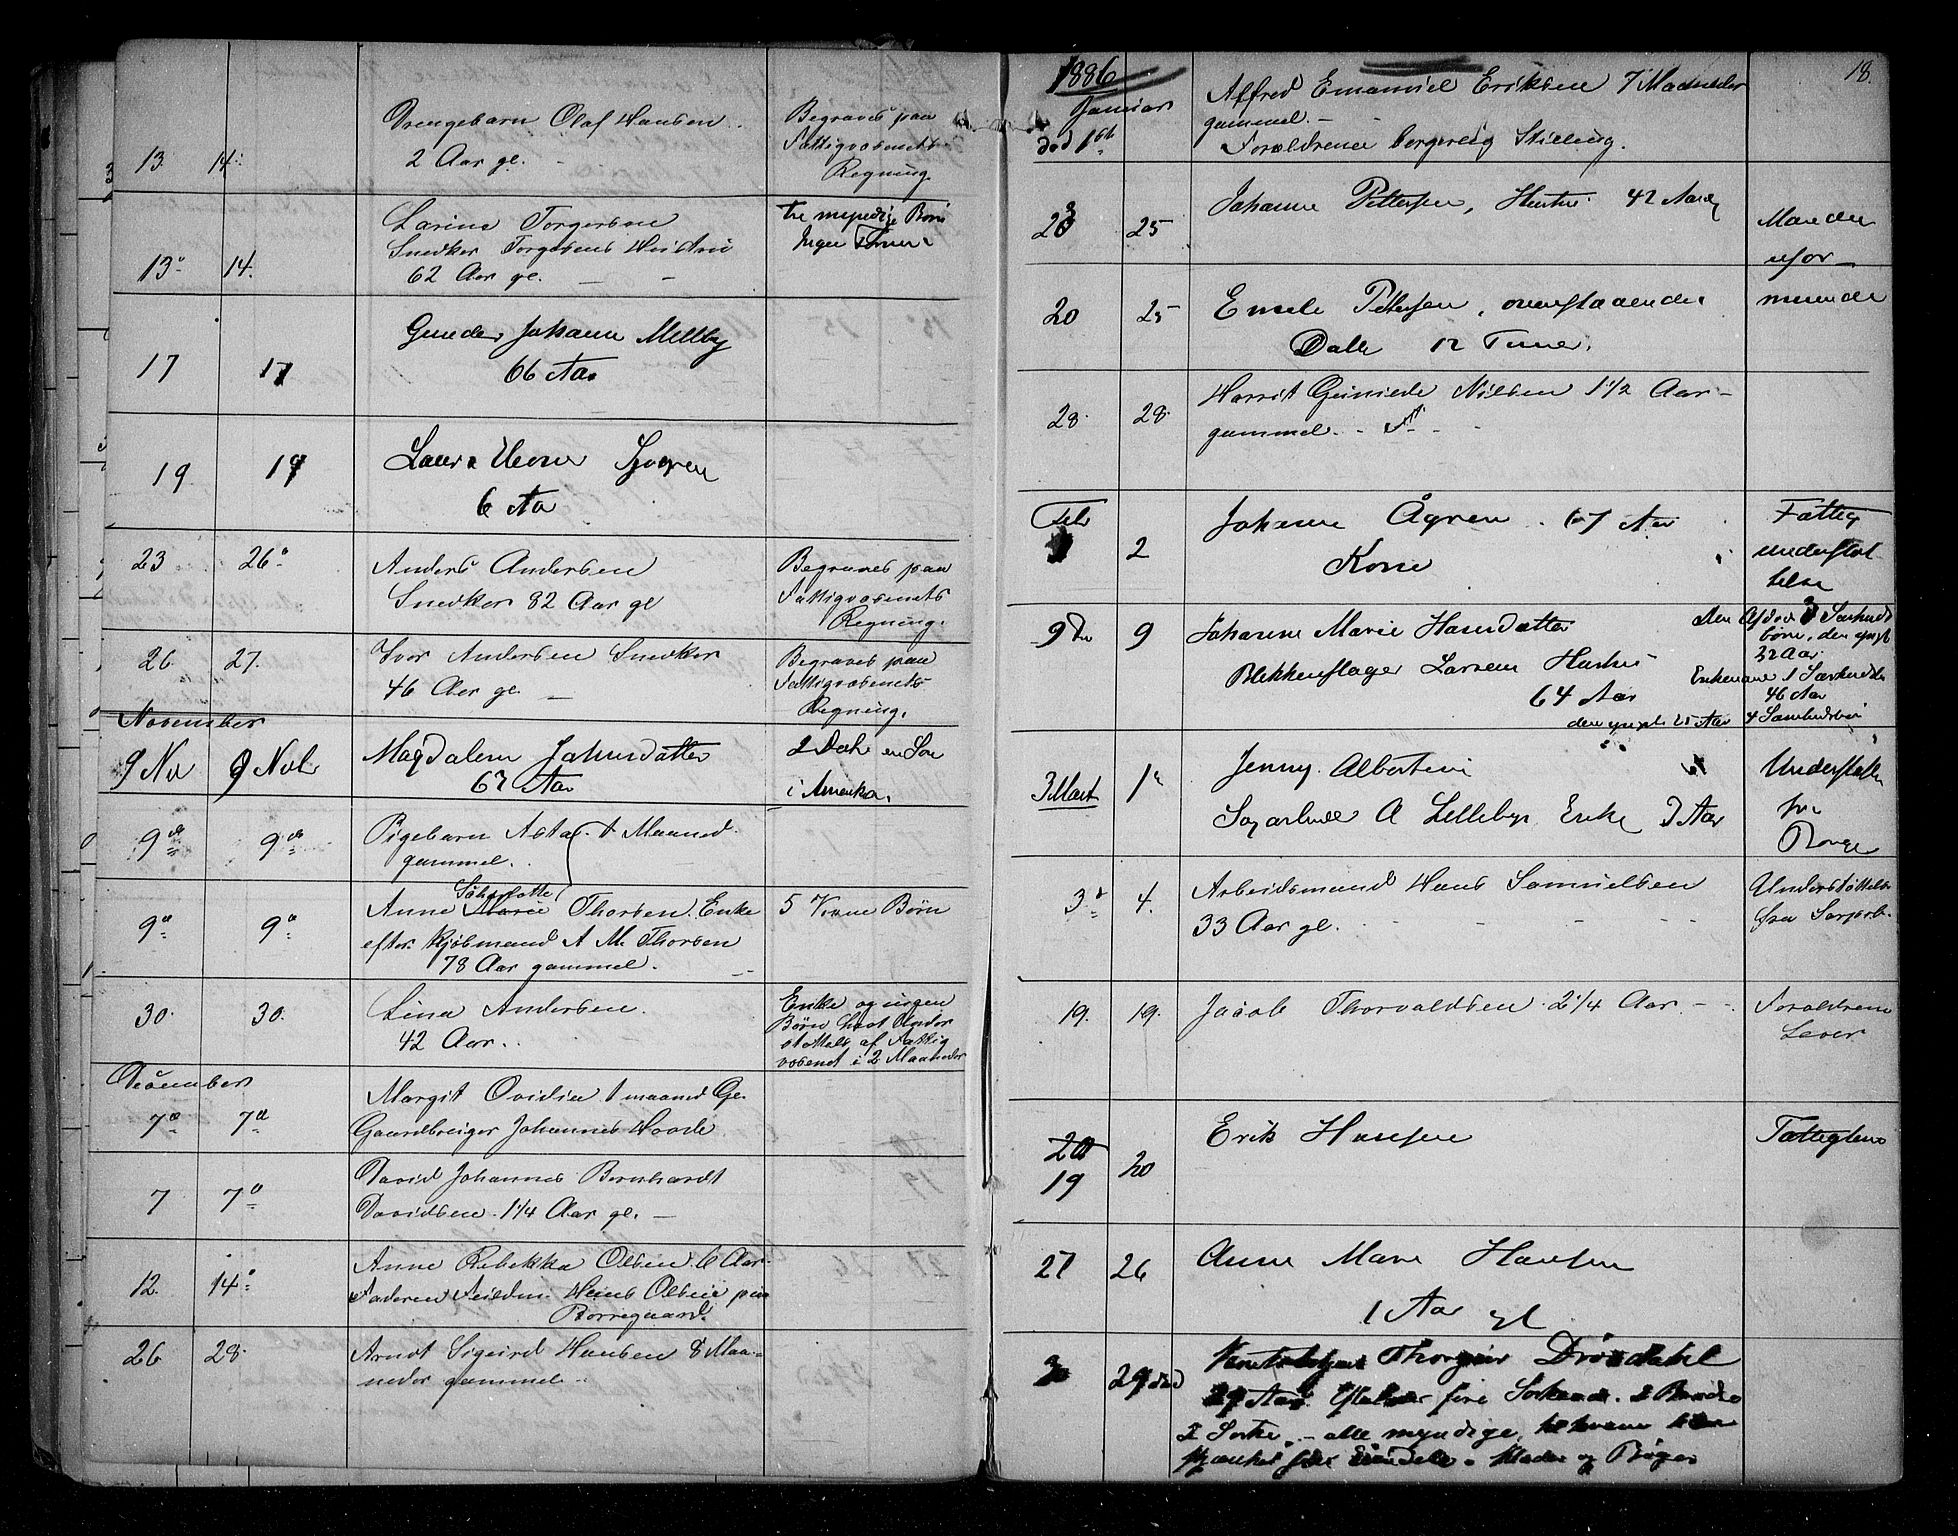 Drengebarn Olaf Hansen
Begraves paa
13 14
2 Aar gl.
Fattigvæsenets
Regning
Larine Torgersen
Snedker Torgersens Hustru
13 14.
62 Aar gl.
tre myndige Børn
Ingen
Johanne Melby
17 17
66 Aar
Laura
19 19
6 Aar
23 26
Anders Andersen
Snedker 82 Aar gl
Begraves paa
Fattigvæsenets
Regning.
26 27.
Ivor Andersen Snedker
46 Aar gl.
Begraves paa
Fattigvæsenets
Regning.
November
9 Nov 9 Nob
Magdalena Johnsdatter
67 Aar
2 Døtr en Søn
i Amerika.
9de 9de
Pigebarn Asta 1 Maaned
gammel.
9de 9de
Anne Marie Thorsen. Enke
efter Kjøbmand A M. Thorsen
78 Aar gammel.
5 Børn
30. 30.
Lina Andersen.
42 Aar.
Enke og ingen
Børn havt Under
støttels af Fattig
væsenet i 2 Maaneder
December
7de 7de
Margit Ovidia 1 maaned Gl.
Gaardbruger Johannes
7 7de
David Johannes Bernhardt
Davidsen 1 1/4 Aar gl.
12. 14
Anne Rebekka Olsen 6 Aar
Faderen Hans Olsen paa
Borregaard.
26 28.
Arndt Sigurd Hansen 8 Maa-
neder gammel
18.
1886
Januar
Alfred Emanuel Eriksen 7 Maaneder
gammel.
Forældrenes borgerlig Stilling.
23 25
Johanne Pettersen, Hustru. 42 Aar
Manden
ufor-
muende
20 25
Emele Pettersen, ovenstaaendes
Datter 12 Timer.
28. 28.
Harrit Nilsen 1 1/2 Aar
gammel.
Feb
2
Johanne Ågren. 67 Aar
Kone
Fattig
understøt-
telse
9de 9
Johanne Marie Hansdatter
Blikkenslager Larsens Hustru
64 Aar
Den Afdøde 3 Særkuld
børn, den yngst
32 Aar
Enkemanden 1 Særkulds
46 Aar
den yngste 25 Aar 4 Samkuldsbørn
3 Mart 1
Jenny Albertine
A Lilleby Enke Aar
Understøtte
fra
3 4.
Arbeidsmand Hans Samuelsen
33 Aar gl.
Understøttelse
fra Sarpsb.
19. 19.
Jacob Thorvaldsen 2 1/4 Aar
Forældrene
Lever
20
19 20
Erik Hansen
Fattiglem
27 26
Anne Marie Hansen
1 Aar gl
29
Thorgeir
Aar. Efterlader fire Søskende. 2 Brødre
2 Søstre, - alle myndige,
Klæder og Bøger